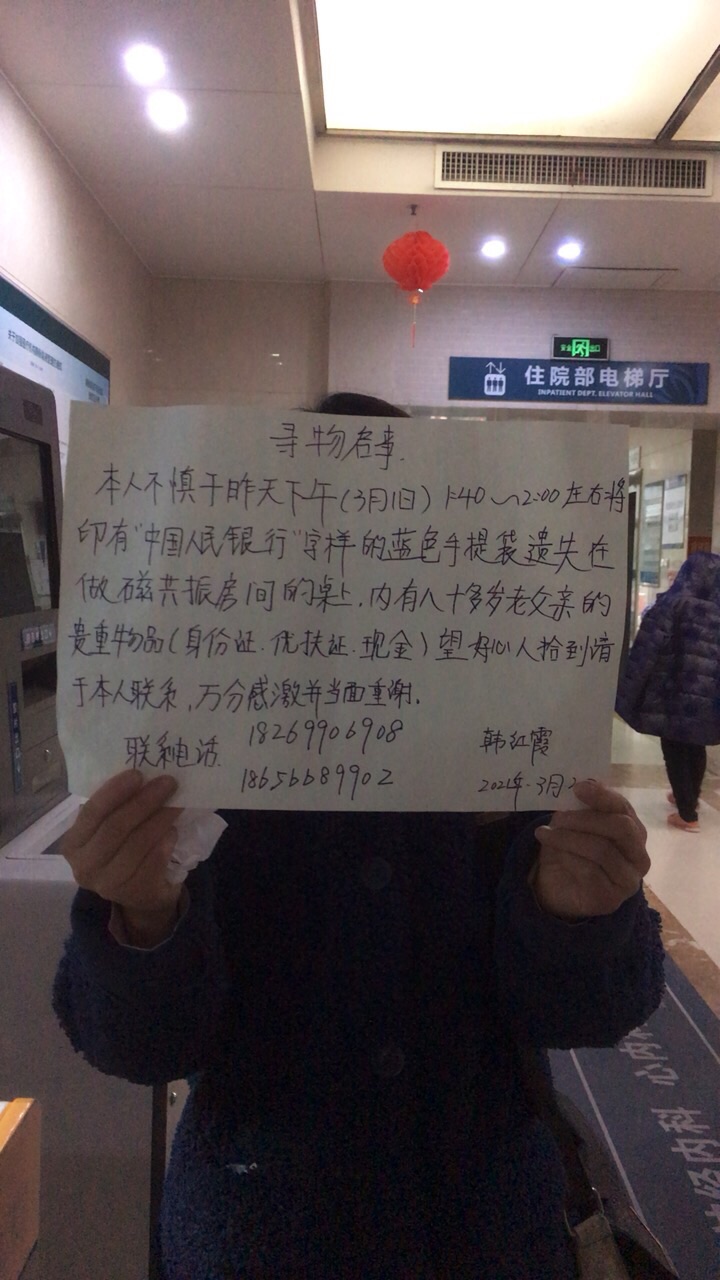 安全出口
住院部电梯厅
INPATIENT DEPT. ELEVATOR HALL
寻物启事.
本人不慎于昨天下午(3月1日)1:40~2:00左右将
印有“中国人民银行”字样的蓝色手提袋遗失在
做磁共振房间的桌上,内有八十多岁老父亲的
贵重物品(身份证.优扶证.现金)望好心人拾到请
于本人联系,万分感激并当面重谢.
联系电话 18269906908
18656689902
韩红霞
2021年.3月2
心内科
内科